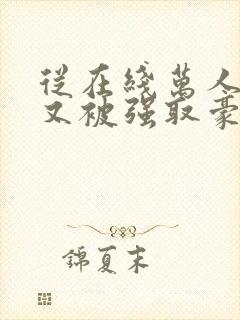 從在綫萬人
又被强取豪
錦夏末